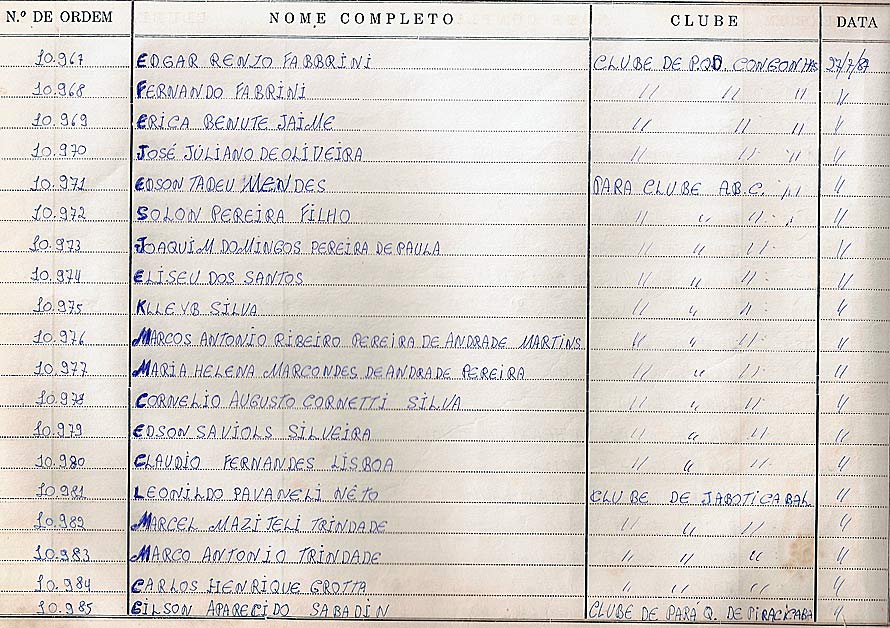 N.º DE ORDEM NOME COMPLETO CLUBE DATA
10.967 EDGAR RENZO FABBRINI CLUBE DE PQD. CONGONHAS 27/7/87
10.968 FERNANDO FABRINI " " " "
10.969 ERICA BENUTE JAIME " " " "
10.970 JOSÉ JULIANO DE OLIVEIRA " " " "
10.971 EDSON TADEU MENDES PARA CLUBE A.B.C. "
10.972 SOLON PEREIRA FILHO " " " "
10.973 JOAQUIM DOMINGOS PEREIRA DE PAULA " " " "
10.974 ELISEU DOS SANTOS " " " "
10.975 KLLEYB SILVA " " " "
10.976 MARCOS ANTONIO RIBEIRO PEREIRA DE ANDRADE MARTINS " " " "
10.977 MARIA HELENA MARCONDES DE ANDRADE PEREIRA " " " "
10.978 CORNELIO AUGUSTO CORNETTI SILVA " " " "
10.979 EDSON SAVIOLS SILVEIRA " " " "
10.980 CLAUDIO FERNANDES LISBOA " " " "
10.981 LEONILDO PAVANELI NÊTO CLUBE DE JABOTICABAL "
10.982 MARCEL MAZITELI TRINDADE " " " "
10.983 MARCO ANTONIO TRINDADE " " " "
10.984 CARLOS HENRIQUE GROTTA " " " "
10.985 GILSON APARECIDO SABADIN CLUBE DE PARA Q. DE PIRACICABA "